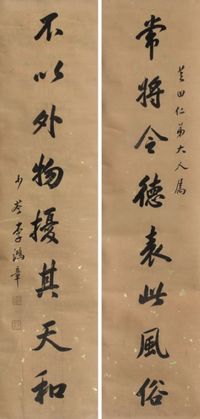 田仁弟大人屬
常將令德表此風俗
不以外物擾其天和
少荃李鴻章